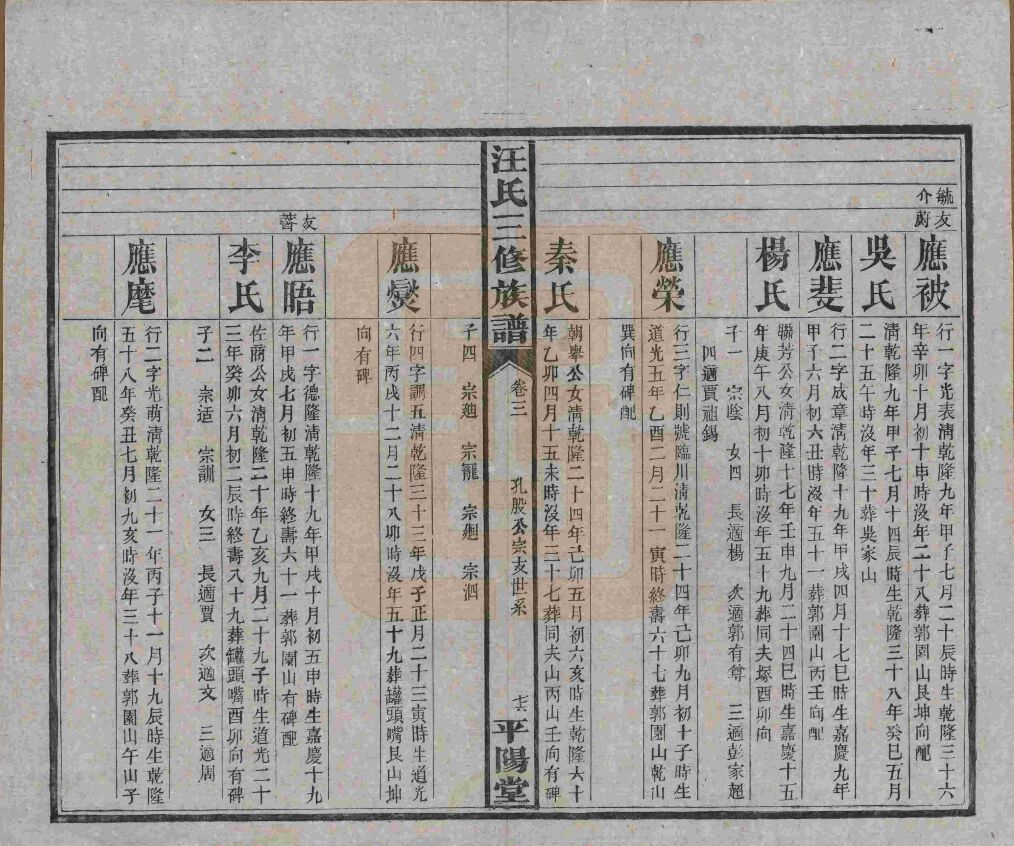 毓友
介蔚
應被
行一字光表清乾隆九年甲子七月二十辰時生乾隆三十六
年辛卯十月初十申時沒年二十八葬郭園山艮坤向配
吳氏
清乾隆九年甲子七月十四辰時生乾隆三十八年癸巳五月
二十五午時沒年三十葬吳家山
應斐
行二字成章清乾隆十九年甲戌四月十七巳時生嘉慶九年
甲子六月初六丑時沒年五十一葬郭園山丙壬向配
楊氏
聯芳公女清乾隆十七年壬申九月二十四巳時生嘉慶十五
年庚午八月初十卯時沒年五十九葬同夫塚酉卯向
子一 宗陰 女四 長適楊 次適郭有尊 三適彭家超
四適賈祖錫
應榮
行三字仁則號臨川清乾隆二十四年己卯九月初十子時生
道光五年乙酉二月二十一寅時終壽六十七葬郭園山乾山
巽向有碑配
秦氏
朝舉公女清乾隆二十四年己卯五月初六亥時生乾隆六十
年乙卯四月十五未時沒年三十七葬同夫山丙山壬向有碑
汪氏三修族譜
卷三
孔殷公宗支世系
平陽堂
子四 宗廸 宗寵 宗廻 宗泗
應燮
行四字調五清乾隆三十三年戊子正月二十三寅時生道光
六年丙戌十二月二十八卯時沒年五十九葬罐頭嘴艮山坤
向有碑
友
應晤
行一字德隆清乾隆十九年甲戌十月初五申時生嘉慶十九
年甲戌七月初五申時終壽六十一葬郭園山有碑配
李氏
佐爾公女清乾隆二十年乙亥九月二十九子時生道光二十
三年癸卯六月初二辰時終壽八十九葬罐頭嘴酉卯向有碑
子二 宗适 宗訓 女三 長適賈 次適文 三適周
應麾
行二字光萌清乾隆二十一年丙子十一月十九辰時生乾隆
五十八年癸丑七月初九亥時沒年三十八葬郭園山午山子
向有碑配